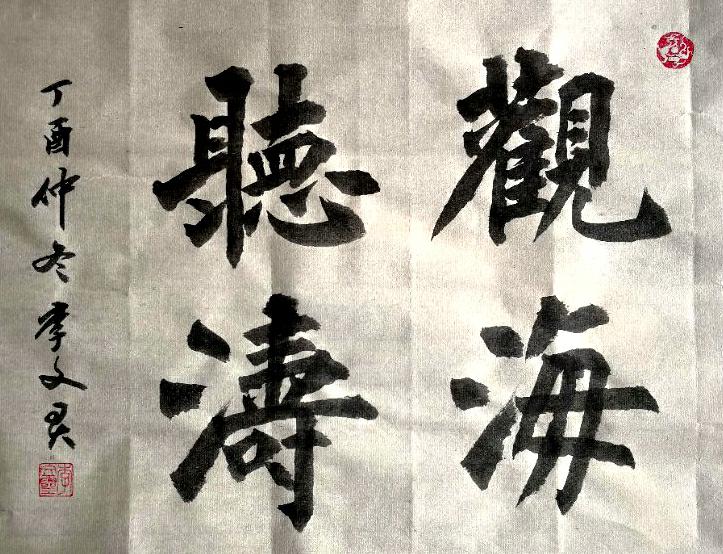 觀海
聽濤
丁酉仲冬李文